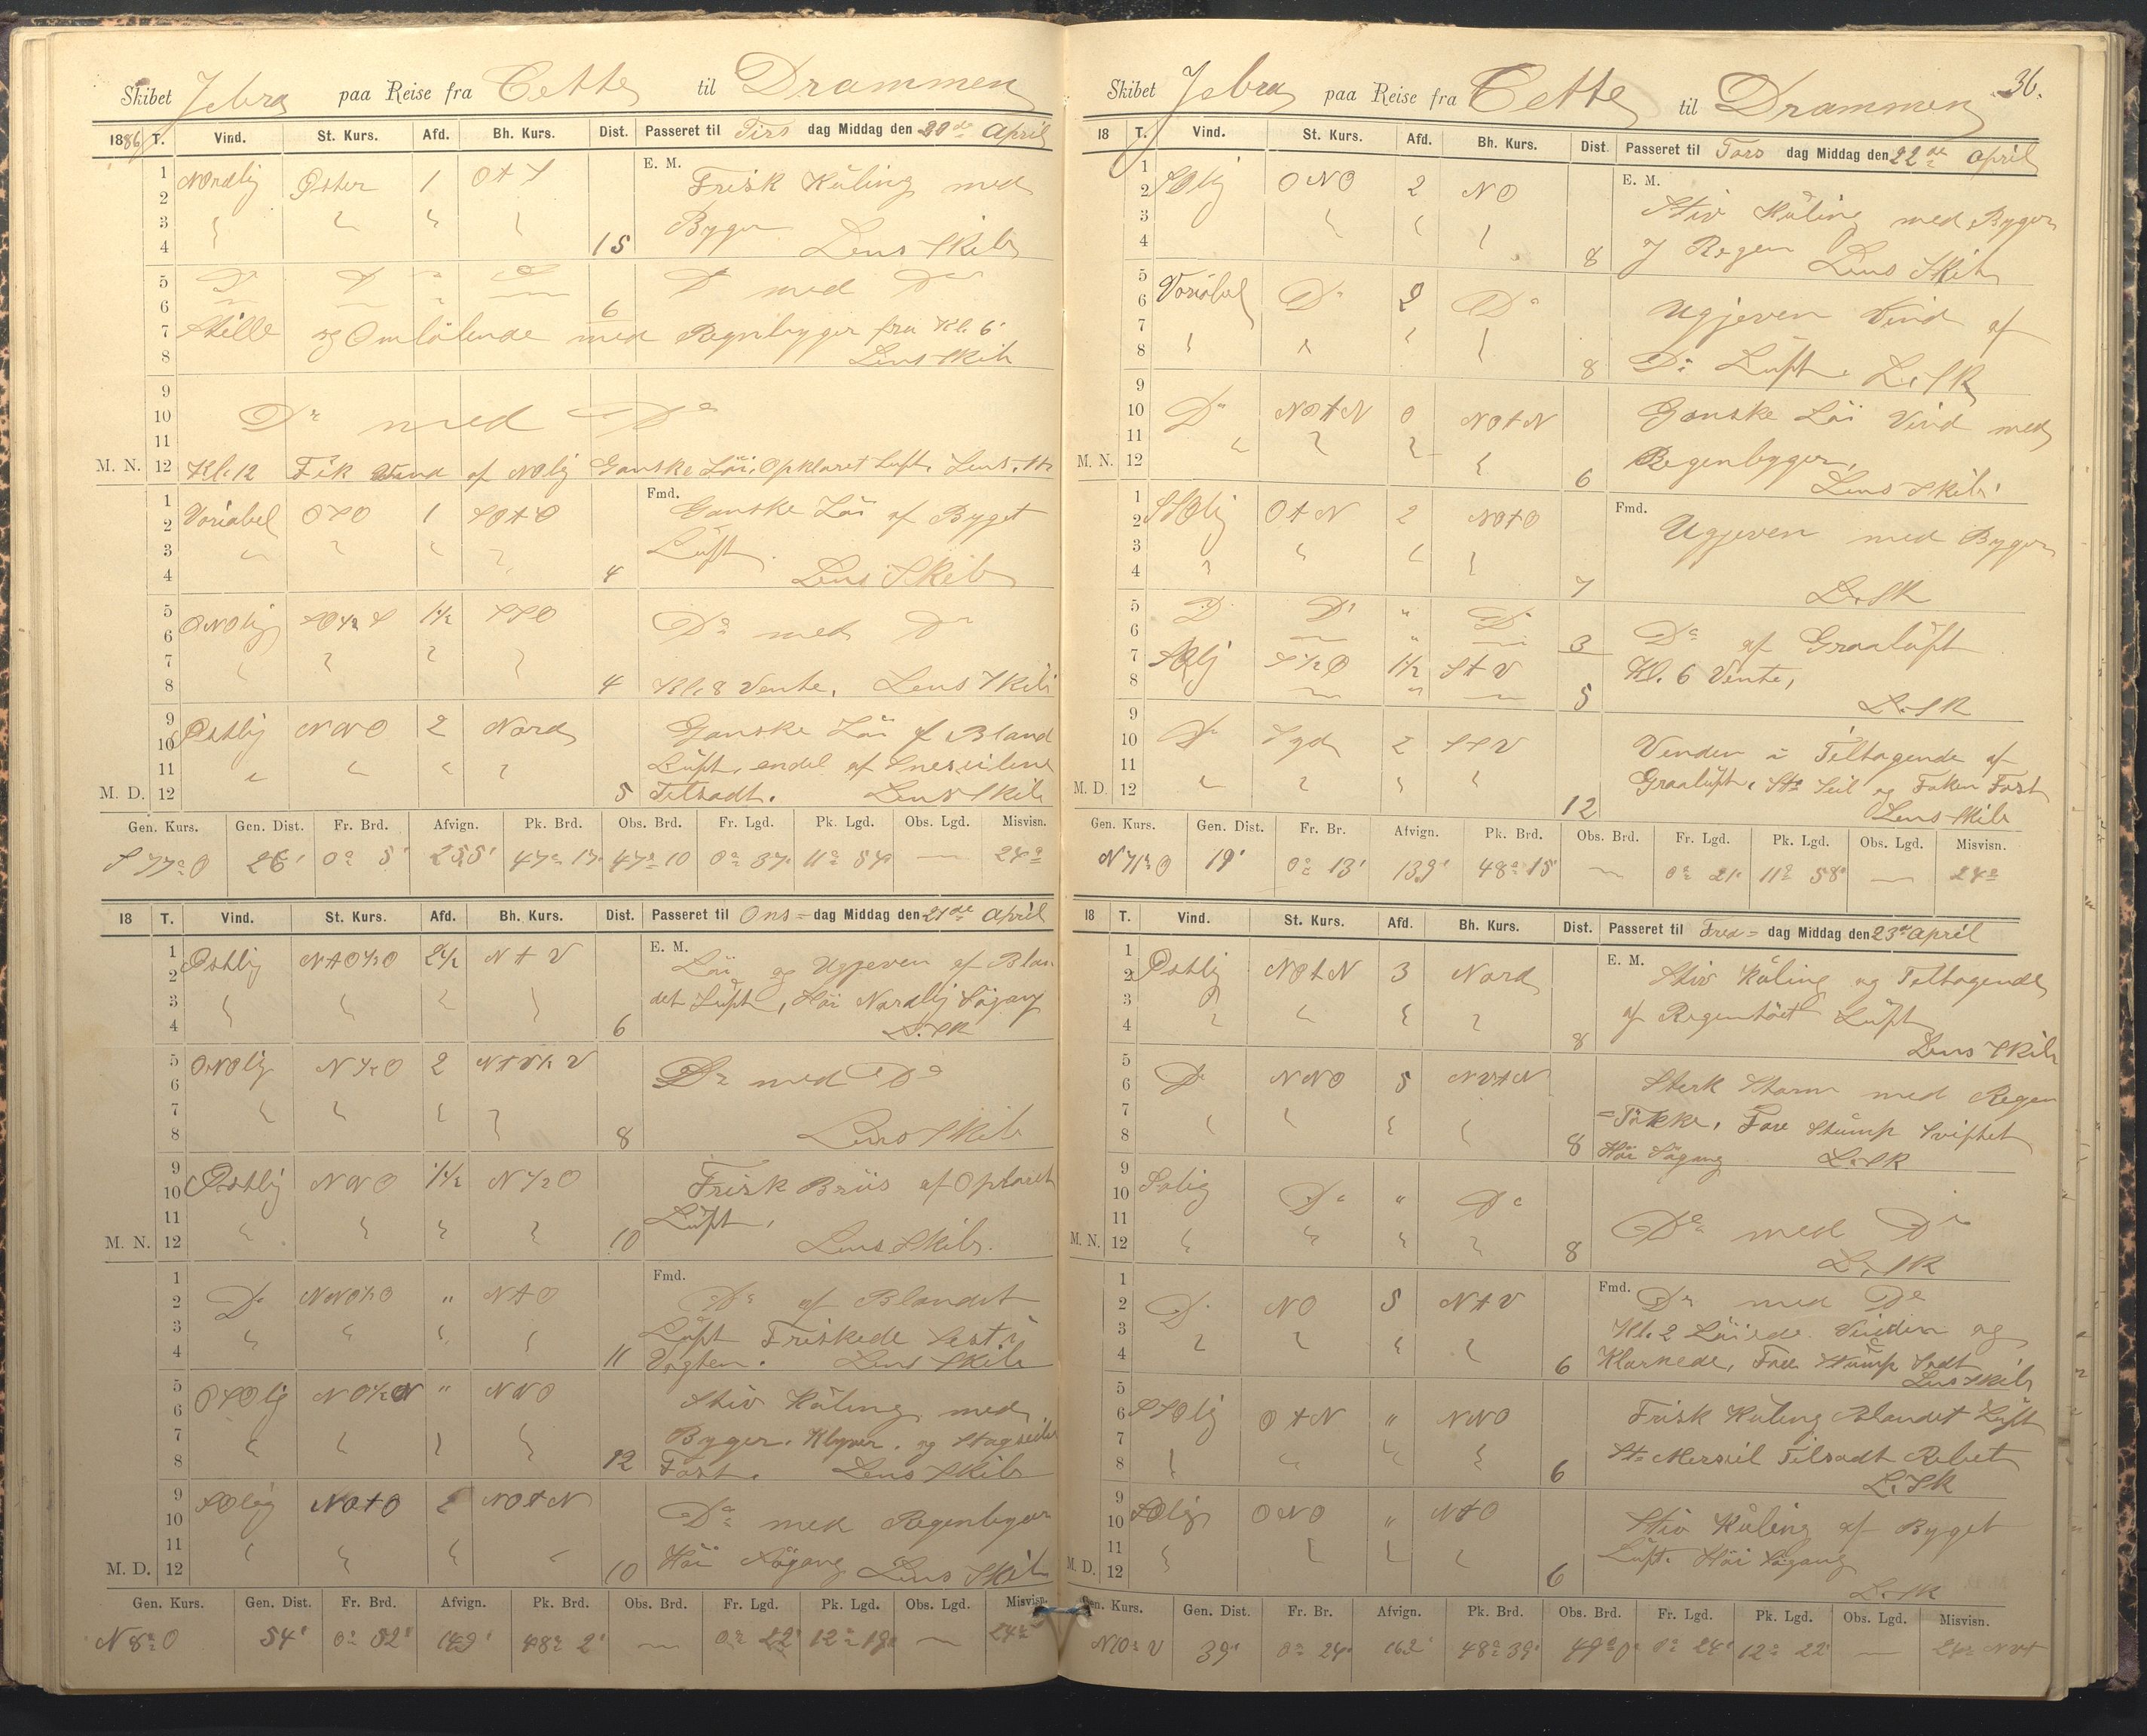 Skibet Jebra paa Reise fra Cette til Drammen
1886 T. Vind. St. Kurs. Afd. Bh. Kurs. Dist. Passeret til Tirs dag Middag den 20de April
1 2 Nordlig Øster 1 OtS E. M. Frisk Kuling med
3 4 15 Byger Lens Skib
5 6 Do Do 6 Do med Do
7 Stille og Omløbende med Regnbyger fra Kl. 6
8 Lens Skib
9
10 Do med Do
11
M. N. 12 Kl. 12 Fik Vind af NOlig Ganske Løi, Opklaret Luft, Lens. Sk
1 2 Variabel OSO 1 SOtO Fmd. Ganske Løi af Byget
3 Luft.
4 4 Lens Skib
5 6 ONOlig SO½S 1½ SSO Do med Do
7
8 4 Kl. 8 Vente, Lens Skib
9 10 Østlig NNO 2 Nord Ganske Løi af Bland
11 Luft, endel af Sneseilene
M. D. 12 5 Tilsadt. Lens Skib
Gen. Kurs. Gen. Dist. Fr. Brd. Afvign. Pk. Brd. Obs. Brd. Fr. Lgd. Pk. Lgd. Obs. Lgd. Misvisn.
S 77° O 26' 0° 5' 255' 47° 17' 47° 10 0° 37' 11° 57' — 24°
18 T. Vind. St. Kurs. Afd. Bh. Kurs. Dist. Passeret til Ons= dag Middag den 21de April
1 2 Østlig NtO½O 2½ NtV E. M. Løi og Ugjeven af Blan
3 det Luft, Høi Nordlig Søgang
4 6 L. SK
5 6 ONOlig N½O 2 NtV½V Do med Do
7
8 8 Lens Skib
9 10 Østlig NNO 1½ N½O Frisk Briis af Opklaret
11 Luft,
M. N. 12 10 Lens Skib.
1 2 Do NNO½O " NtO Fmd. Do af Blandet
3 Luft Friskede sist i
4 11 Vagten. Lens Skib
5 6 OSOlig NO½N " NNO Stiv Kuling med
7 Byger. Klyver. og Stagseil
8 12 Fast. Lens Skib
9 10 SOlig NOtO 2 NOtN Do med Regenbyger
11
M. D. 12 10 Høi Søgang Lens Skib
Gen. Kurs. Gen. Dist. Fr. Brd. Afvign. Pk. Brd. Obs. Brd. Fr. Lgd. Pk. Lgd. Obs. Lgd. Misvisn.
N 8° O 54' 0° 52' 149' 48° 2' — 0° 22' 12° 19' — 24°
36.
Skibet Jebra paa Reise fra Cette til Drammen
18 T. Vind. St. Kurs. Afd. Bh. Kurs. Dist. Passeret til Tors dag Middag den 22de April
1 2 SOlig ONO 2 NO E. M. Stiv Kuling med Byger
3
4 8 og Regen Lens Skib
5 6 Variabel Do 2 Do Ugjeven Vind af
7
8 8 Do Luft. L. SK
9 10 Do NOtN 0 NOtN Ganske Løi Vind med
11 Regenbyger,
M. N. 12 6 Lens Skib.
1 2 SSOlig OtN 2 NOtO Fmd. Ugjeven med Byger
3
4 7 L. SK
5 6 Do Do " Do 3 Do af Graaluft
7 SOlig S½O 1½ StV Kl. 6 Vente,
8 5 L. SK
9 10 Do Syd 2 SSV Vinden i Tiltagende af
11 Graaluft. St. Seil og Foken Fast
M. D 12 12 Lens Skib
Gen. Kurs. Gen. Dist. Fr. Br. Afvign. Pk. Brd. Obs. Brd. Fr. Lgd. Pk. Lgd. Obs. Lgd. Misvisn.
N 71° O 19' 0° 13' 139' 48° 15' — 0° 21' 11° 58' — 24°
18 T. Vind. St. Kurs. Afd. Bh. Kurs. Dist. Passeret til Fred= dag Middag den 23de April
1 2 Østlig NOtN 3 Nord E. M. Stiv Kuling og Tiltagende
3 af Regentøit Luft
4 8 Lens Skib
5 6 Do NNO 5 NVtN Sterk Storm med Regen
7 =Tøkke, Fore Stump Sviftet
8 8 Høi Søgang L. SK
9 10 Solig Do " Do
11 Do med Do
M. N. 12 8 L. SK
1 2 Do NO 5 NtV Fmd. Do med Do
3 Kl. 2 Løiede Vinden og
4 6 Klarnede, Fore Stump Sadt Lens Skib
5 6 SSOlig OtN " NNO Frisk Kuling Blandet Luft
7 St. Mersseil Tilsadt Rebet
8 6 L. SK
9 10 SOlig ONO " NtO Stiv Kuling af Byget
11 Luft. Høi Søgang
M. D. 12 6 L. SK
Gen. Kurs. Gen. Dist. Fr. Br. Afvign. Pk. Brd. Obs. Brd. Fr. Lgd. Pk. Lgd. Obs. Lgd. Misvisn.
N 10° V 39' 0° 24' 162' 48° 39' 49° 0' 0° 24' 12° 22' — 24° Nvt